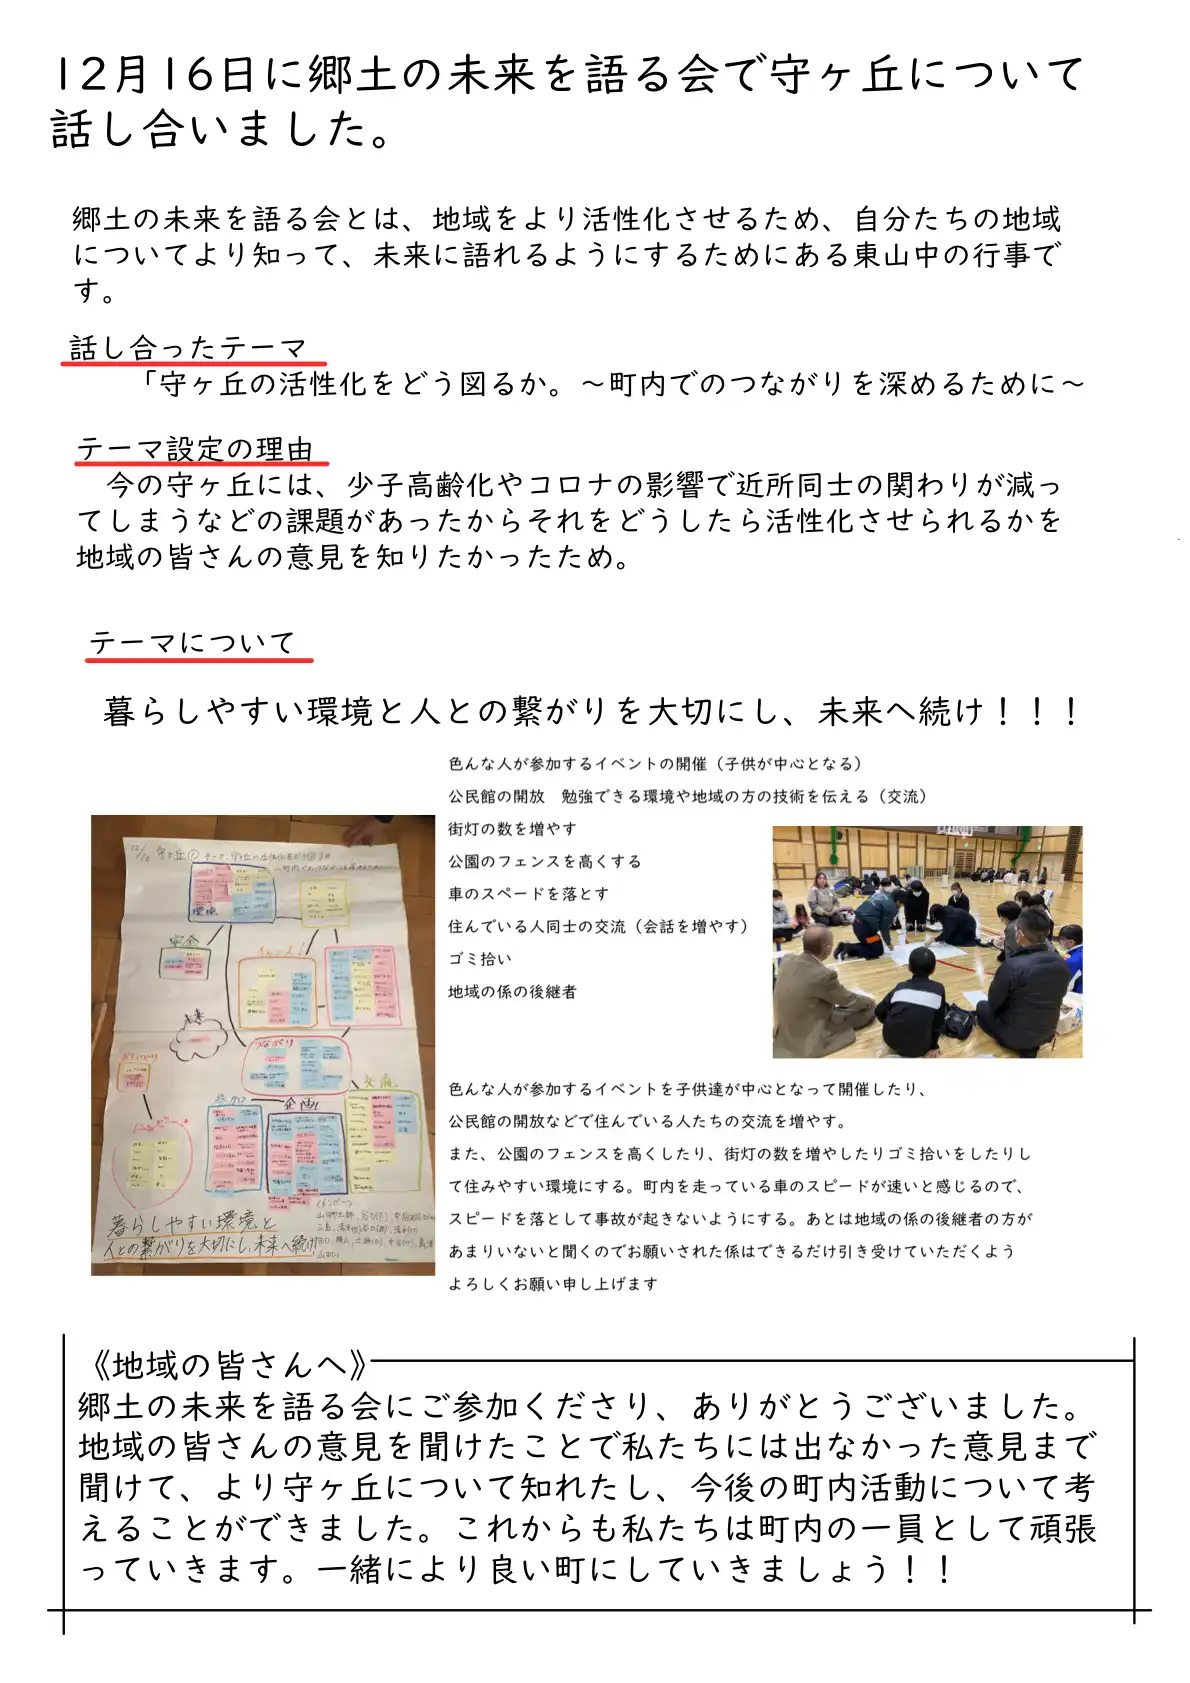 12月16日に郷土の未来を語る会で守ヶ丘について
話し合いました。
郷土の未来を語る会とは、地域をより活性化させるため、自分たちの地域
についてより知って、未来に語れるようにするためにある東山中の行事で
す。
話し合ったテーマ
「守ヶ丘の活性化をどう図るか。～町内でのつながりを深めるために～
テーマ設定の理由
今の守ヶ丘には、少子高齢化やコロナの影響で近所同士の関わりが減っ
てしまうなどの課題があったからそれをどうしたら活性化させられるかを
地域の皆さんの意見を知りたかったため。
テーマについて
暮らしやすい環境と人との繋がりを大切にし、未来へ続け！！！
色んな人が参加するイベントの開催（子供が中心となる）
公民館の開放　勉強できる環境や地域の方の技術を伝える（交流）
街灯の数を増やす
公園のフェンスを高くする
車のスペードを落とす
住んでいる人同士の交流（会話を増やす）
ゴミ拾い
地域の係の後継者
12/16 守ヶ丘①
環境
安全
未来
つながり
交流
企画
暮らしやすい環境と
人との繋がりを大切にし、未来へ続け!
色んな人が参加するイベントを子供達が中心となって開催したり、
公民館の開放などで住んでいる人たちの交流を増やす。
また、公園のフェンスを高くしたり、街灯の数を増やしたりゴミ拾いをしたりし
て住みやすい環境にする。町内を走っている車のスピードが速いと感じるので、
スピードを落として事故が起きないようにする。あとは地域の係の後継者の方が
あまりいないと聞くのでお願いされた係はできるだけ引き受けていただくよう
よろしくお願い申し上げます
《地域の皆さんへ》
郷土の未来を語る会にご参加くださり、ありがとうございました。
地域の皆さんの意見を聞けたことで私たちには出なかった意見まで
聞けて、より守ヶ丘について知れたし、今後の町内活動について考
えることができました。これからも私たちは町内の一員として頑張
っていきます。一緒により良い町にしていきましょう！！